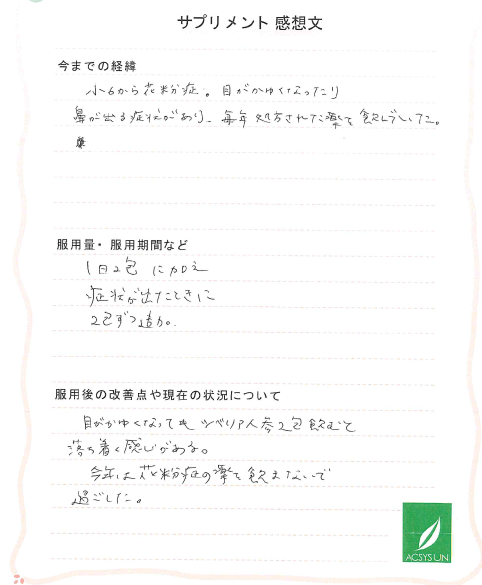 サプリメント 感想文
今までの経緯
小6から花粉症。目がかゆくなったり
鼻が出る症状があり、毎年処方された薬を飲んでいた。
服用量・服用期間など
1日2包 に加え
症状が出たときに
2包ずつ追加。
服用後の改善点や現在の状況について
目がかゆくなっても シベリア人参2包飲むと
落ち着く感じがある。
今年は花粉症の薬を飲まないで
過ごした。
ACSYSUN